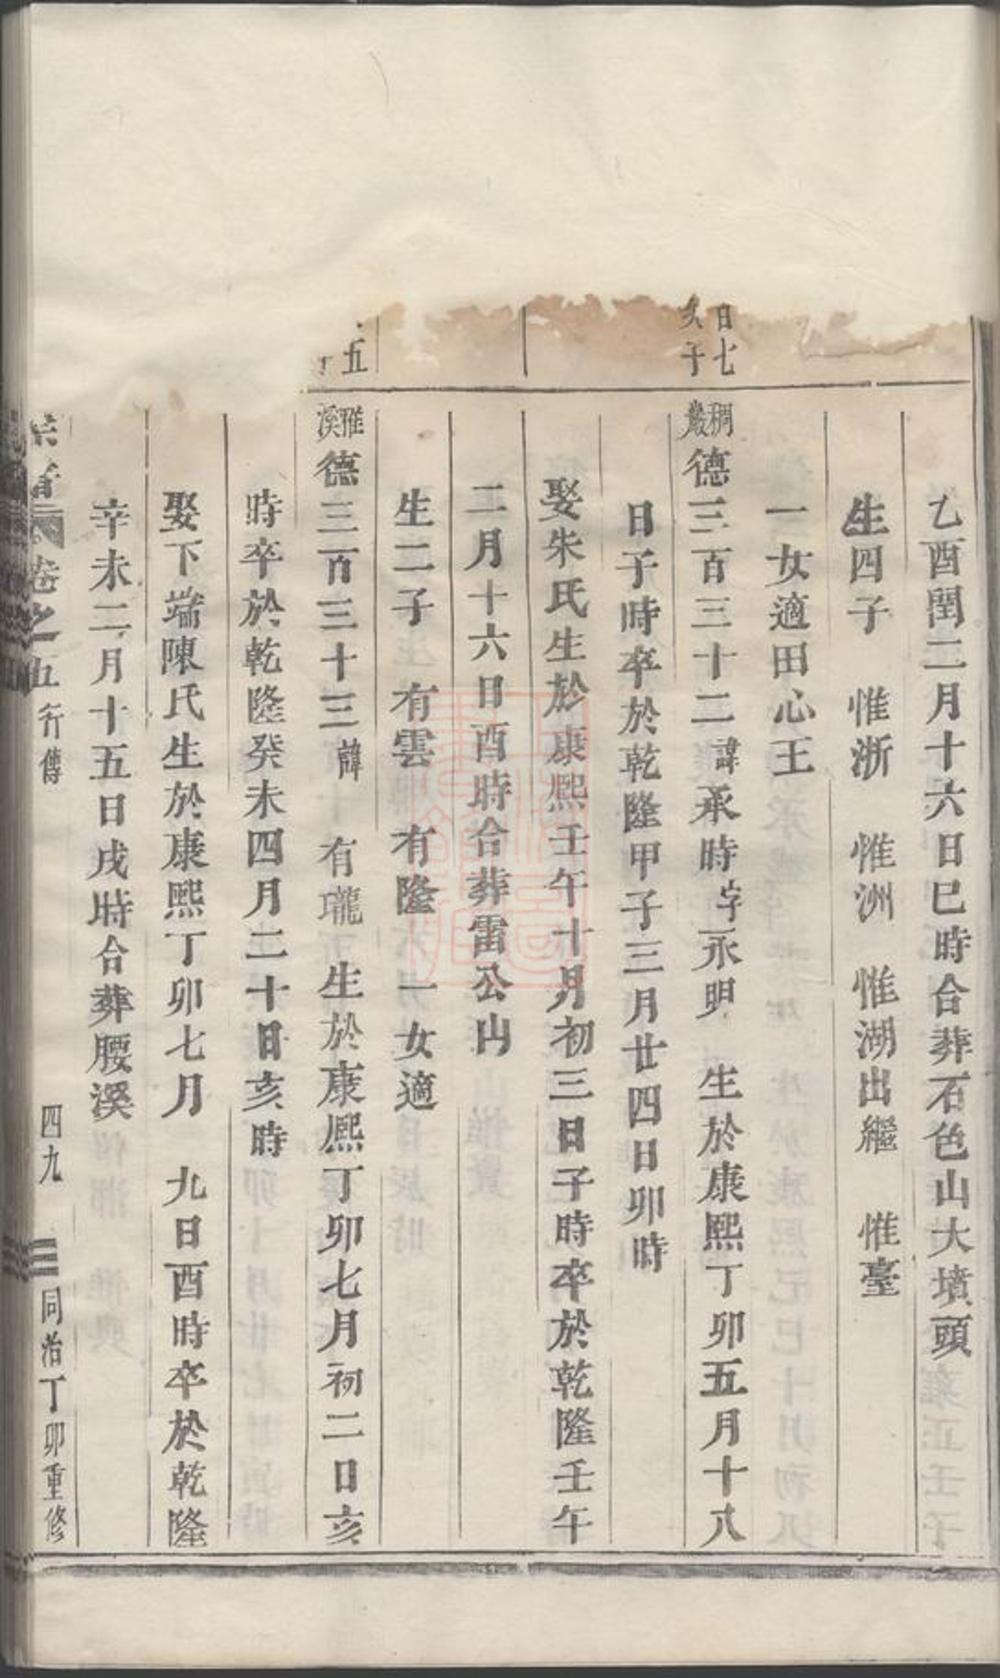 乙酉閏二月十六日巳時合葬石色山大墳頭
生四子　惟浙　惟洲　惟湖出繼　惟臺
一女適田心王
日七
子
稠巖
德三百三十二諱承時字永明　生於康熙丁卯五月十八
日子時卒於乾隆甲子三月廿四日卯時
娶朱氏生於康熙壬午十月初三日子時卒於乾隆壬午
二月十六日酉時合葬雷公山
生二子　有雲　有隆　一女適
五
雅溪
德三百三十三諱　有瓏　生於康熙丁卯七月初二日亥
時卒於乾隆癸未四月二十日亥時
娶下端陳氏生於康熙丁卯七月　九日酉時卒於乾隆
辛未二月十五日戌時合葬腰溪
卷之五　行傳　四九　同治丁卯重修